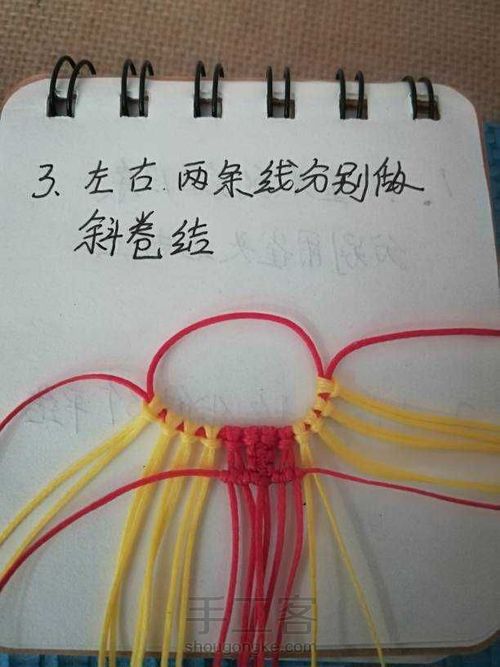 3、左右两条线分别做
斜卷结
手工客
shougongke.com